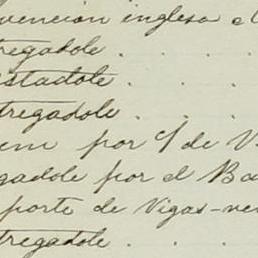 vención inglesa
tregadole . . .
estadole . . .
tregadole . . .
em por c/ de V
gadole por el Ba
porte de Vigas-ve
tregadole . . .